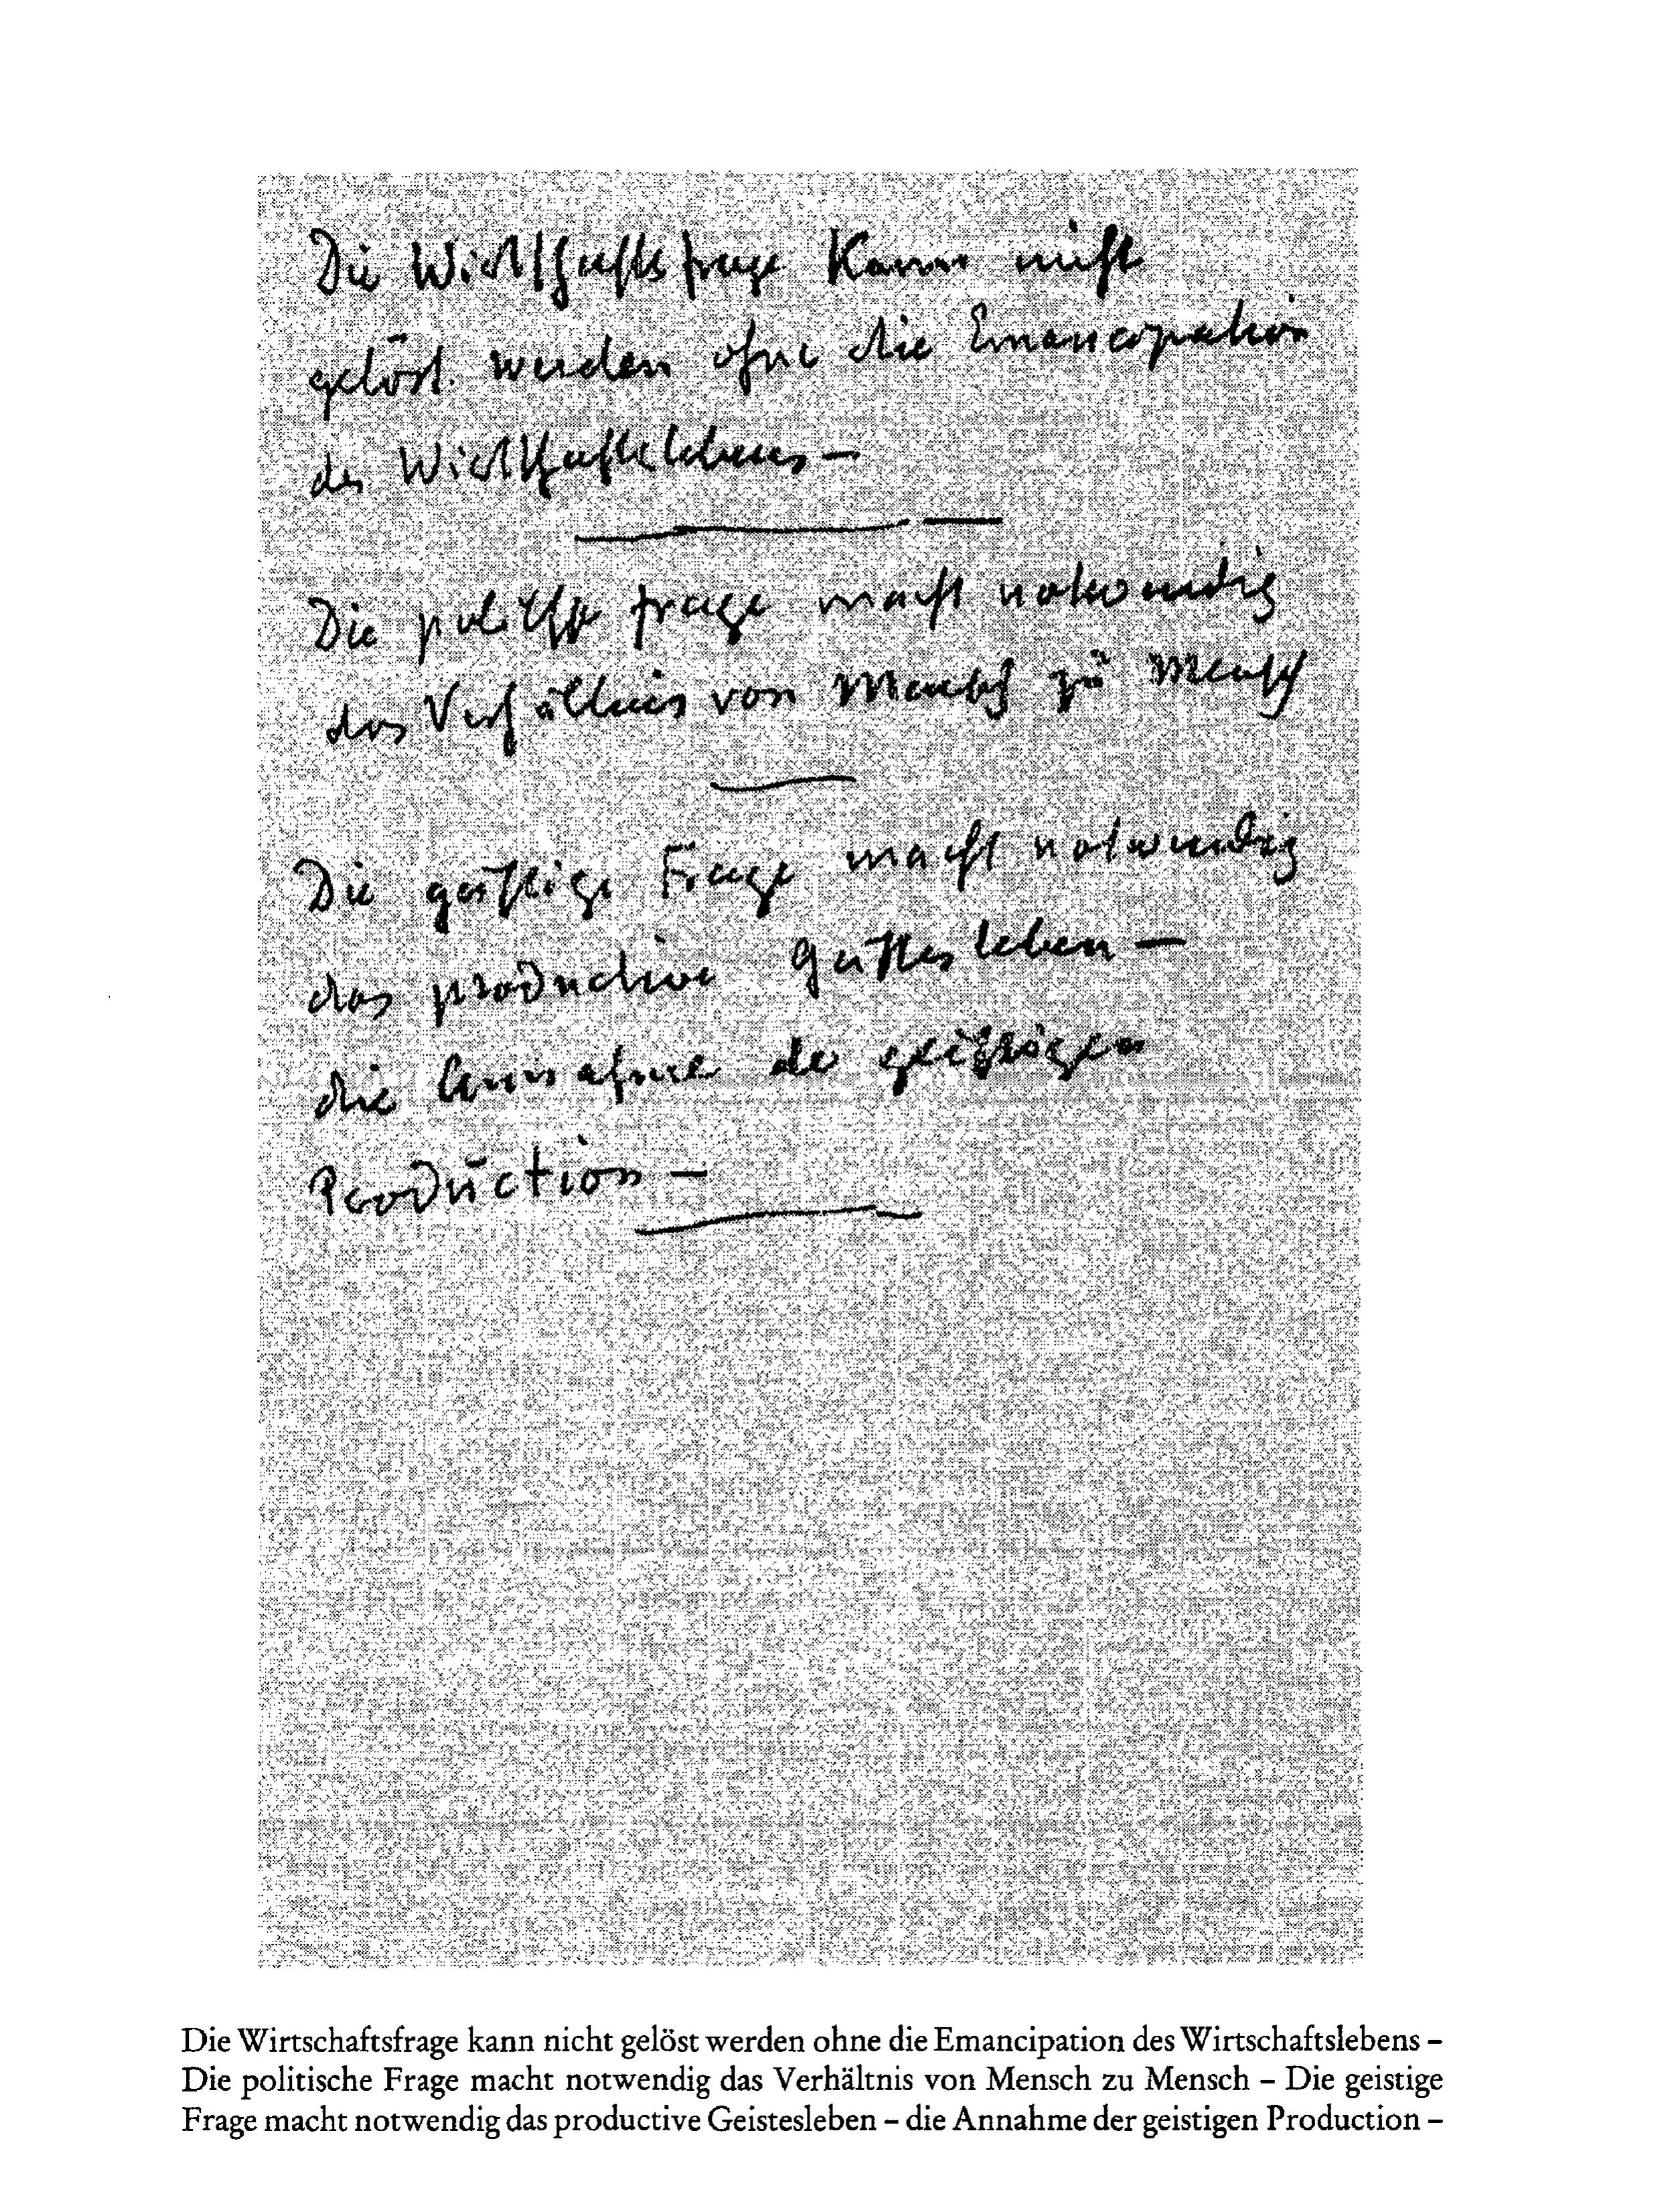 Die Wirtschaftsfrage kann nicht
gelöst werden ohne die Emancipation
des Wirtschaftslebens –
Die politische Frage macht notwendig
das Verhältnis von Mensch zu Mensch
Die geistige Frage macht notwendig
das productive Geistesleben –
die Annahme der geistigen
Production –
Die Wirtschaftsfrage kann nicht gelöst werden ohne die Emancipation des Wirtschaftslebens –
Die politische Frage macht notwendig das Verhältnis von Mensch zu Mensch – Die geistige
Frage macht notwendig das productive Geistesleben – die Annahme der geistigen Production –